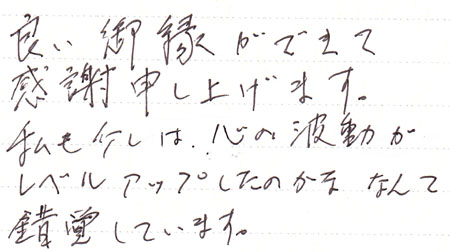 良い御縁ができて
感謝申し上げます。
私も少しは、心の波動が
レベルアップしたのかな なんて
錯覚しています。